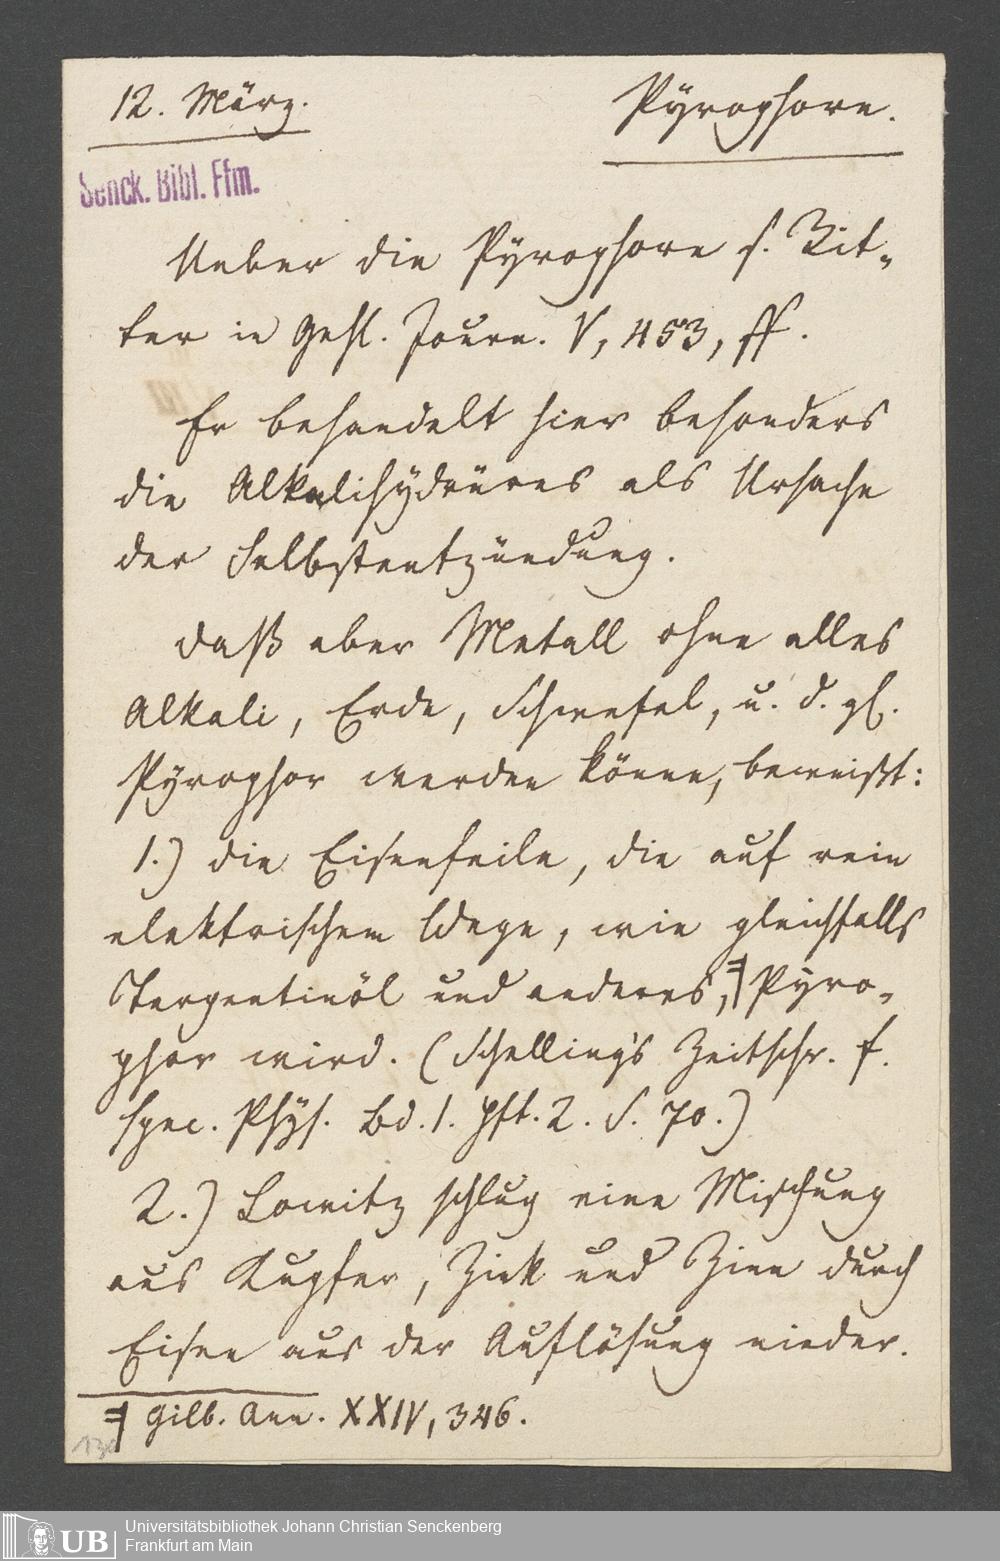 12. März. Pÿrophore.
Senck. Bibl. Ffm.
Ueber die Pÿrophore s. Rit-
ter in Gehl. Journ. V, 453, ff.
Er behandelt hier besonders
die Alkalihÿdrüres als Ursache
der Selbstentzündung.
Daß aber Metall ohne alles
Alkali, Erde, Schwefel, u. d. gl.
Pÿrophor werden könne, beweißt:
1.) die Eisenfeile, die auf rein
elektrischem Wege, wie gleichfalls
Terpentinöl und anderes, ╡ Pÿro-
phor wird. (Schelling's Zeitschr. f.
spec. Phÿs. Bd. 1. Hft. 2. S. 70.)
2.) Lowitz schlug eine Mischung
aus Kupfer, Zink und Zinn durch
Eisen aus der Auflösung nieder.
╡ Gilb. Ann. XXIV, 346.
UB
Universitätsbibliothek Johann Christian Senckenberg
Frankfurt am Main